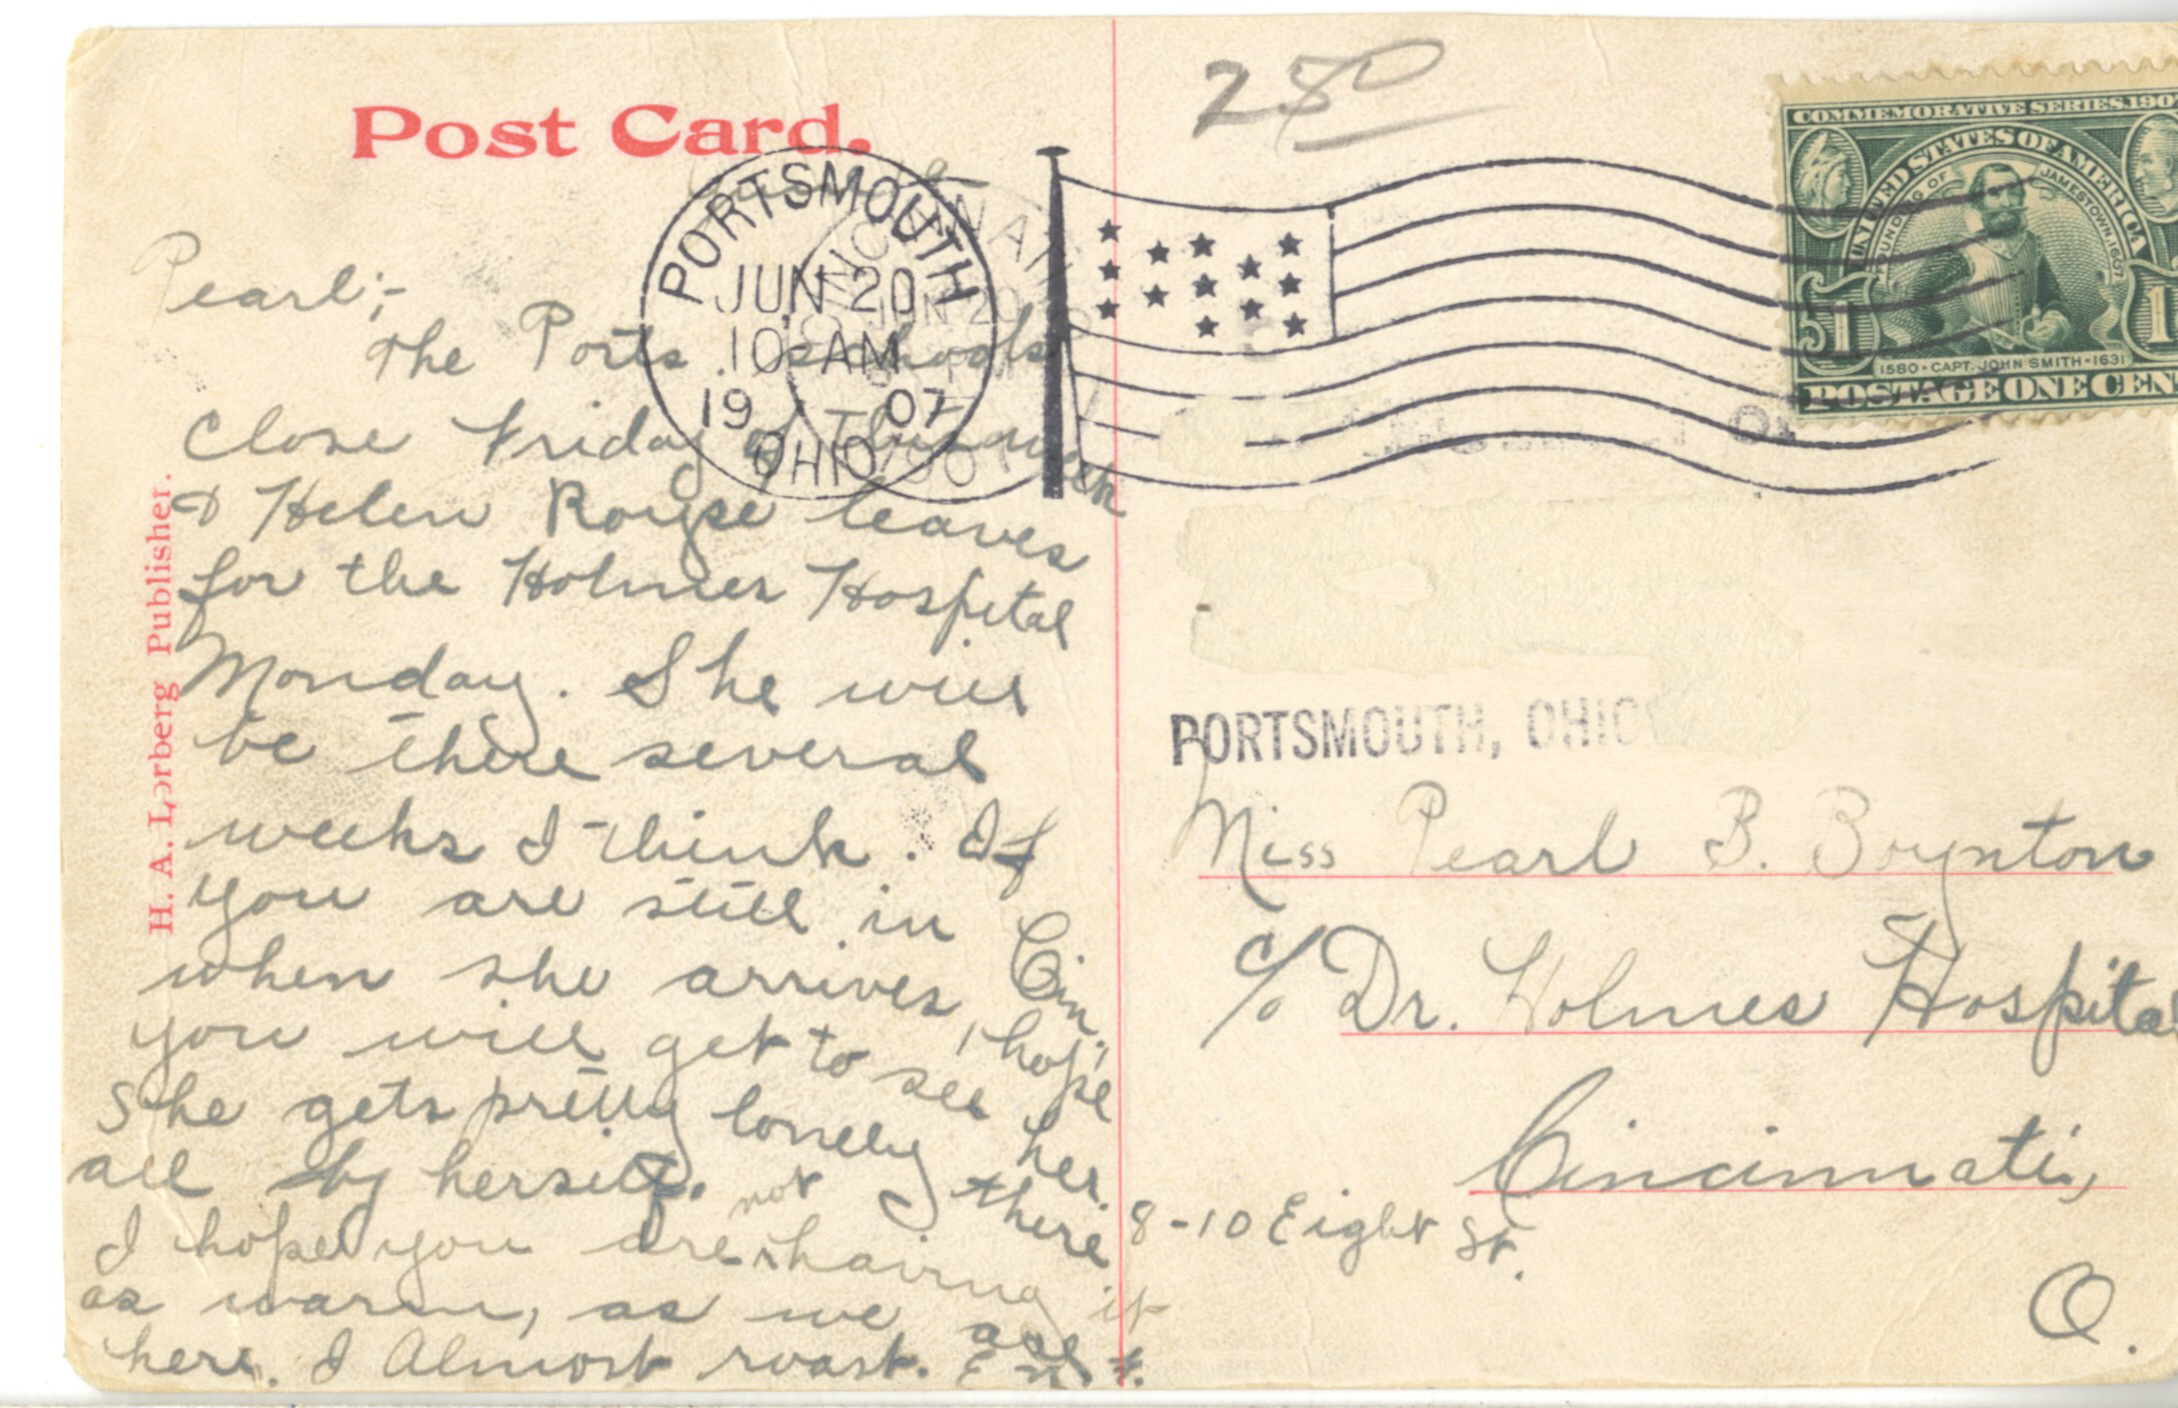 Post Card.
H. A. Lorberg Publisher.
PORTSMOUTH
JUN 20
10 AM
1907
OHIO
Pearl;-
The Ports. schools
close Friday of this week
& Helen Royse leaves
for the Holmes Hospital
Monday. She will
be there several
weeks I think. If
you are still in Cin.
when she arrives, I hope
you will get to see her.
She gets pretty lonely there
all by herself.
I hope you are not having it
as warm, as we are
here. I Almost roast.
280
COMMEMORATIVE SERIES 190
UNITED STATES OF AMERICA
FOUNDING OF JAMESTOWN 1607
1 1
1580 • CAPT. JOHN SMITH • 1631
POSTAGE ONE CEN
PORTSMOUTH, OHIO
Miss Pearl B. Boynton
c/o Dr. Holmes Hospital
Cincinnati,
8-10 Eight St.
O.